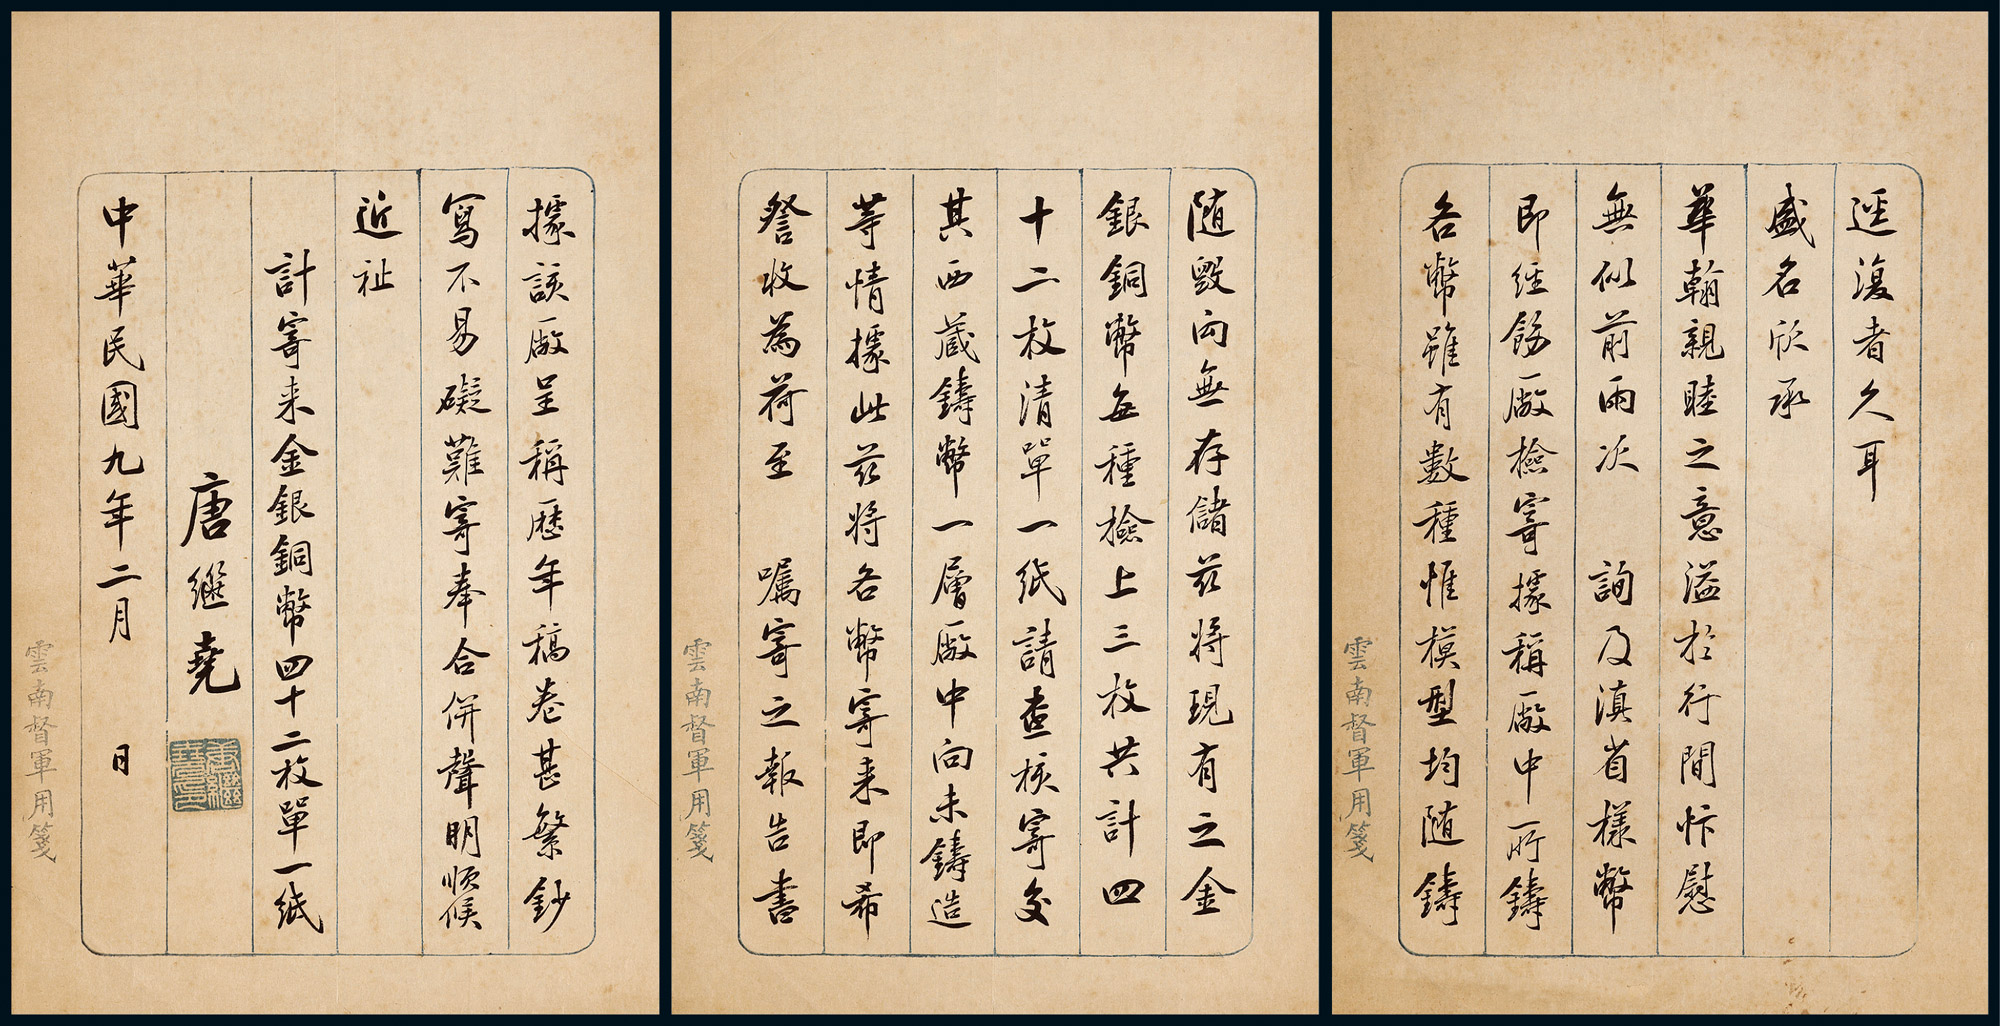 逕復者久耳
盛名欣承
華翰親睦之意溢於行間忭慰
無似前兩次 詢及滇省樣幣
即經飭廠檢寄據稱廠中所鑄
各幣雖有數種惟模型均隨鑄
雲南督軍用箋
隨毀向無存儲茲將現有之金
銀銅幣每種檢上三枚共計四
十二枚清單一紙請查核寄交
其西藏鑄幣一層廠中向未鑄造
等情據此茲將各幣寄来即希
詧收為荷至 囑寄之報告書
雲南督軍用箋
據該廠呈稱歷年稿卷甚繁鈔
寫不易礙難寄奉合併聲明順候
近祉
計寄来金銀銅幣四十二枚單一紙
唐繼堯
中華民國九年二月 日
雲南督軍用箋